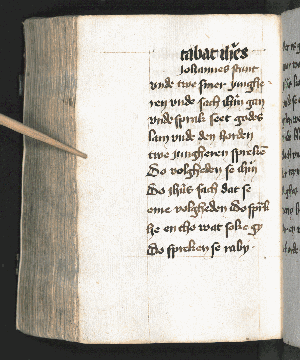 tabat ih̄es
Johannes stunt
vnde twe siner iunghe
ren vnde sach ih̄m gan
vnde sprak seet godes
lam vnde den horden
twe iungheren sprekē
Do volgheden se ih̄m
Do ih̄us sach dat se
eme volgheden Do sprk
he en tho wat soke gy
Do spreken se raby